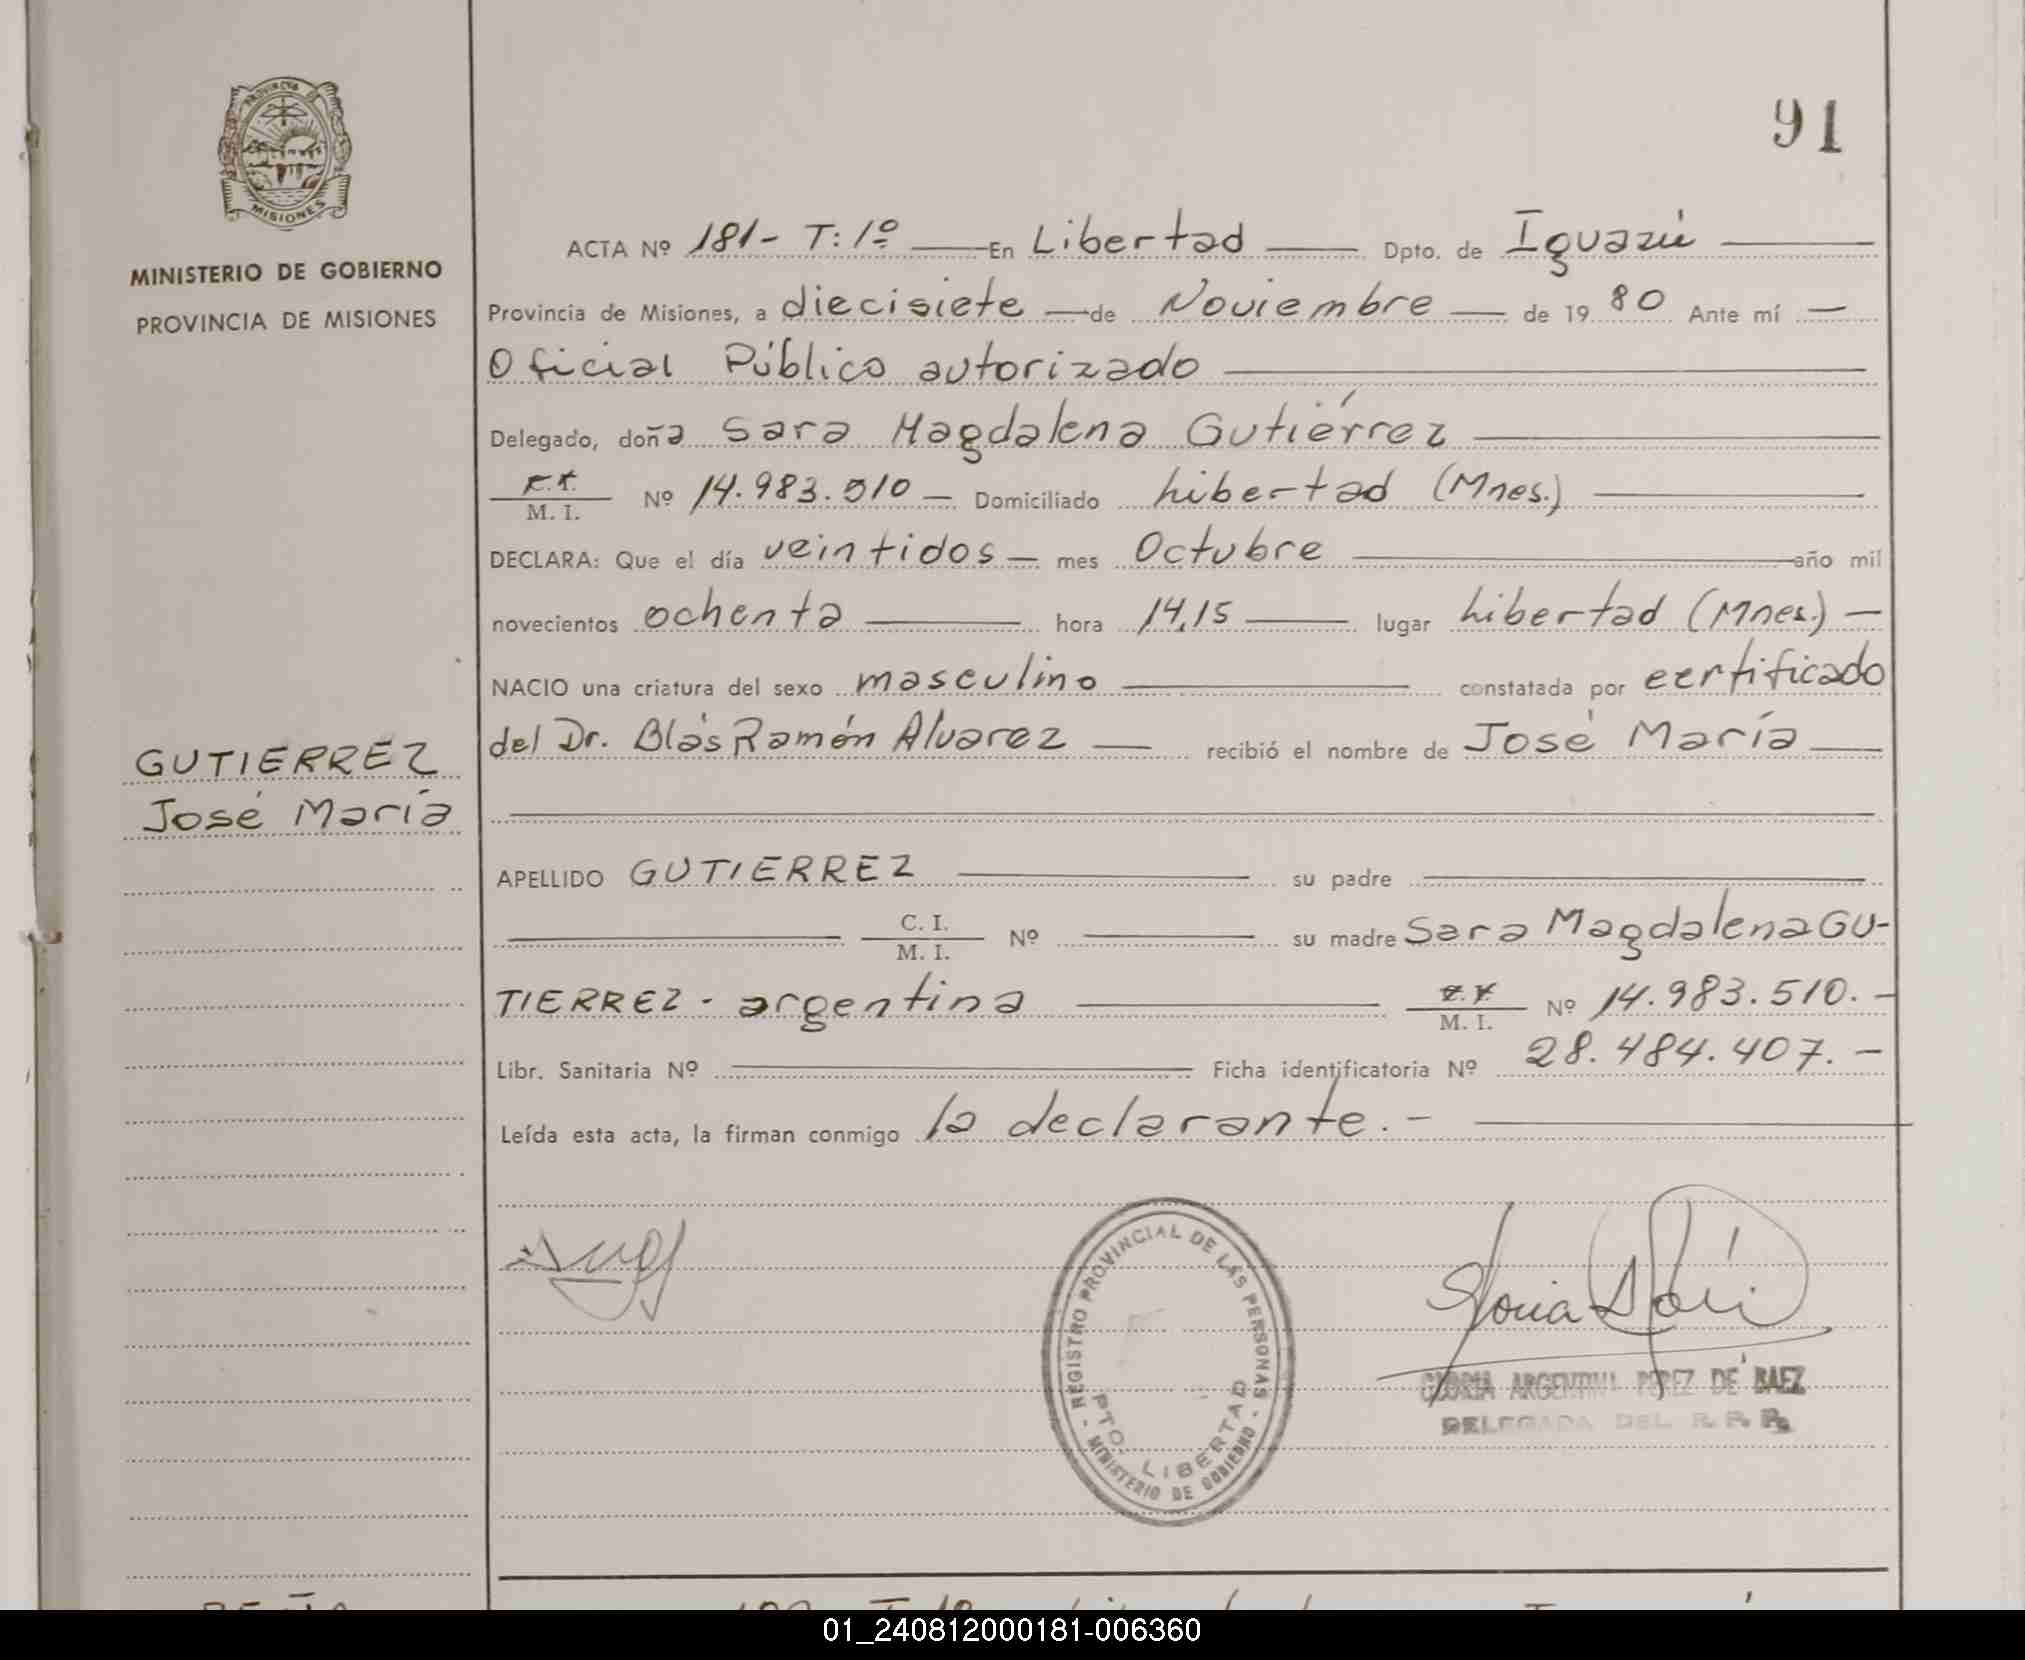 PROVINCIA DE
MISIONES
MINISTERIO DE GOBIERNO
PROVINCIA DE MISIONES
91
ACTA Nº 181- T: 1º — En Libertad — Dpto. de Iguazú —
Provincia de Misiones, a diecisiete — de Noviembre — de 19 80 Ante mí —
Oficial Público autorizado —
Delegado, doña Sara Magdalena Gutiérrez —
M. I. Nº 14.983.510 — Domiciliado Libertad (Mnes.) —
DECLARA: Que el día veintidos — mes Octubre — año mil
novecientos ochenta — hora 14,15 — lugar Libertad (Mnes.) —
NACIO una criatura del sexo masculino — constatada por certificado
del Dr. Blás Ramón Alvarez — recibió el nombre de José María —
GUTIERREZ
José María
APELLIDO GUTIERREZ — su padre —
— C. I. M. I. Nº — su madre Sara Magdalena GU-
TIERREZ - argentina — M. I. Nº 14.983.510. -
Libr. Sanitaria Nº — Ficha identificatoria Nº 28.484.407. —
Leída esta acta, la firman conmigo la declarante. - —
- REGISTRO PROVINCIAL DE LAS PERSONAS -
MINISTERIO DE GOBIERNO
PTO. LIBERTAD
GLORIA ARGENTINA PEREZ DE BAEZ
DELEGADA DEL R. P. P.
01_240812000181-006360